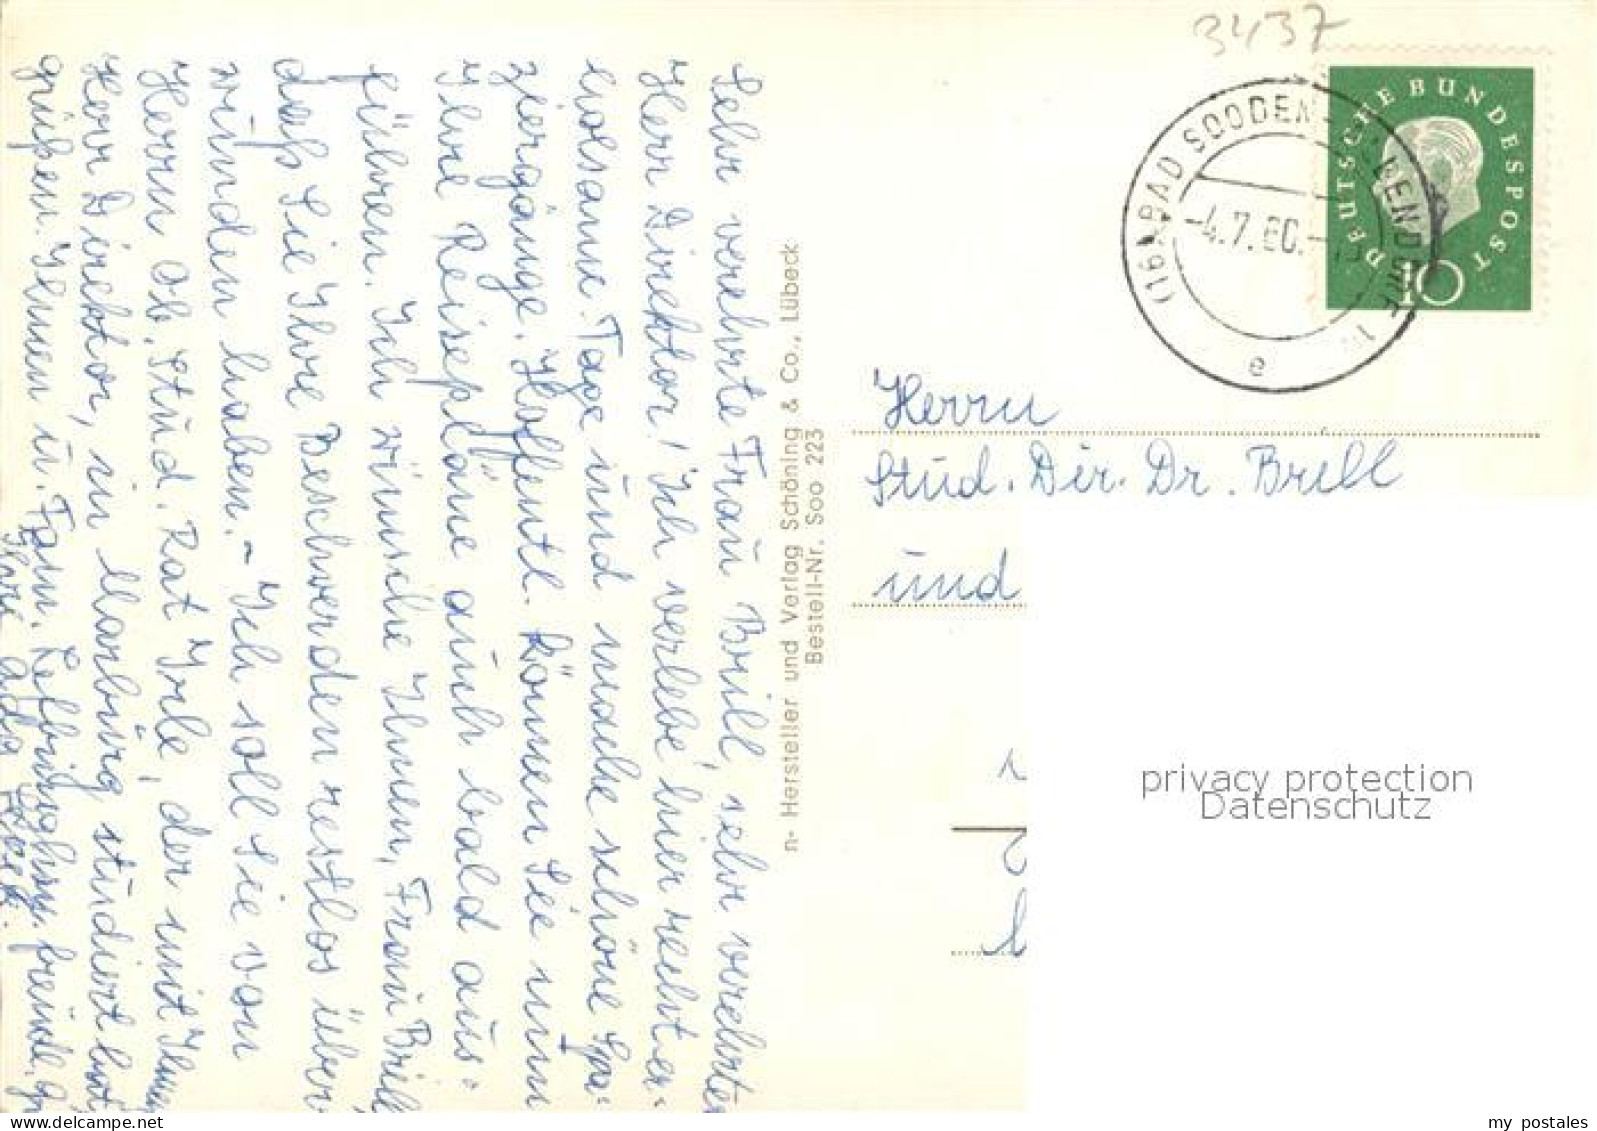 Sehr verehrte Frau Brill, sehr verehrter
Herr Direktor! Ich verlebe hier recht er-
holsame Tage und mache schöne Spa-
ziergänge. Hoffentl. können Sie nun
Ihre Reisepläne auch bald aus-
führen. Ich wünsche Ihnen, Frau Brill,
daß Sie Ihre Beschwerden restlos über-
wunden haben. - Ich soll Sie von
Herrn Ob. Stud. Rat Irle, der mit Ihnen,
Herr Direktor, in Marburg studiert hat,
grüßen. Ihnen u. Fam. freundl.
Ihre
n- Hersteller und Verlag Schöning & Co., Lübeck
Bestell-Nr. Soo 223
3437
DEUTSCHE BUNDESPOST
10
(16) BAD SOODEN-ALLENDORF
-4.7.60.-
e
Herrn
Stud. Dir. Dr. Brill
und
privacy protection
Datenschutz
my postales